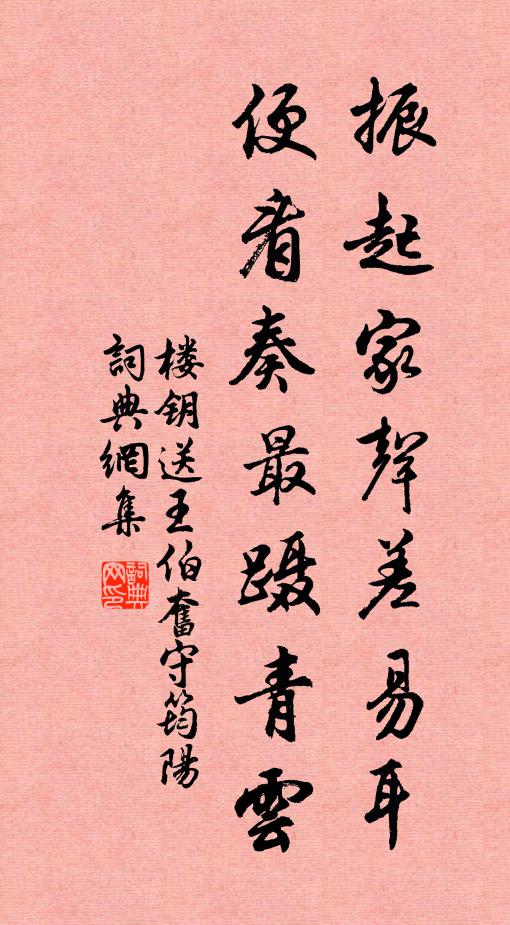 振起家聲差易耳
便看奏最蹑青雲
楼钥送王伯奮守筠陽
詞典網集
詞典网印